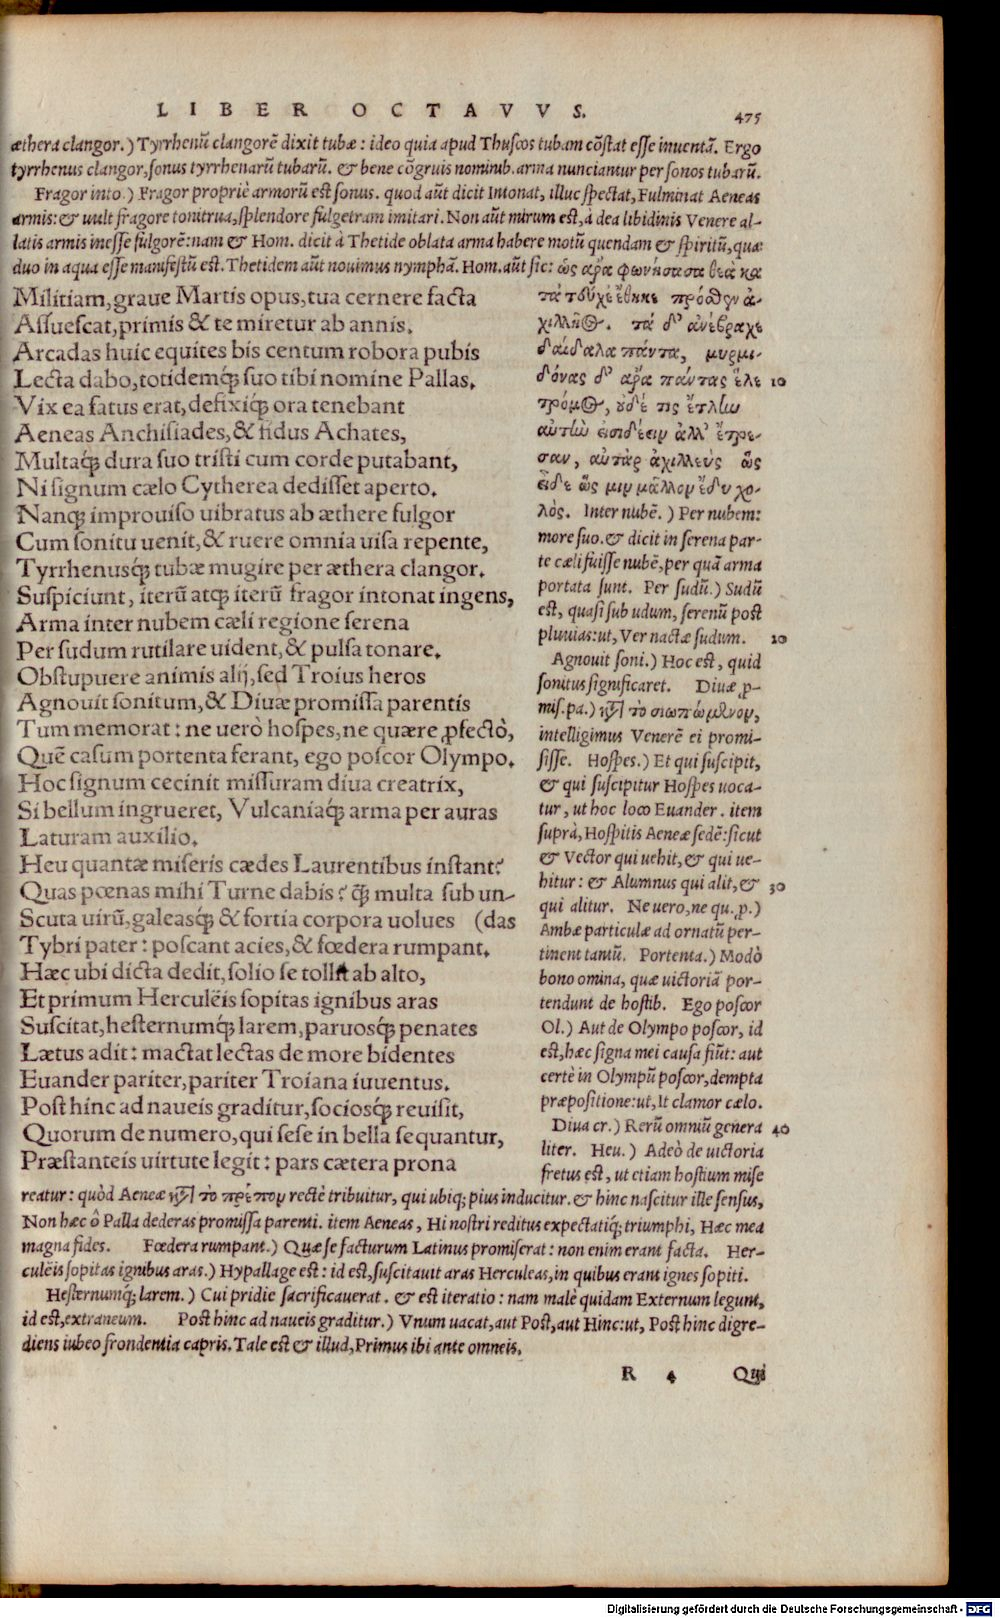 LIBER OCTAVVS. 475
æthera clangor.) Tyrrhenũ clangorẽ dixit tubæ: ideo quia apud Thuscos tubam cõstat esse inuentã. Ergo
tyrrhenus clangor, sonus tyrrhenarũ tubarũ. & bene cõgruis nominib. arma nunciantur per sonos tubarũ.
Fragor into.) Fragor propriè armorũ est sonus. quod aũt dicit Intonat, illuc spectat, Fulminat Aeneas
armis: & uult fragore tonitrua, splendore fulgetram imitari. Non aũt mirum est, à dea libidinis Venere al-
latis armis inesse fulgorẽ: nam & Hom. dicit à Thetide oblata arma habere motũ quendam & spiritũ, quæ
duo in aqua esse manifestũ est. Thetidem aũt nouimus nymphã. Hom. aũt sic: ὣς ἄρα φωνήσασα θεὰ κα
Militiam, graue Martis opus, tua cernere facta
Assuescat, primis & te miretur ab annis.
Arcadas huic equites bis centum robora pubis
Lecta dabo, totidemq́; suo tibi nomine Pallas.
Vix ea fatus erat, defixiq́; ora tenebant
Aeneas Anchisiades, & fidus Achates,
Multaq́; dura suo tristi cum corde putabant,
Ni signum cælo Cytherea dedisset aperto.
Nanq; improuiso uibratus ab æthere fulgor
Cum sonitu uenit, & ruere omnia uisa repente,
Tyrrhenusq́; tubæ mugire per æthera clangor.
Suspiciunt, iterũ atq; iterũ fragor intonat ingens,
Arma inter nubem cæli regione serena
Per sudum rutilare uident, & pulsa tonare.
Obstupuere animis alij, sed Troius heros
Agnouit sonitum, & Diuæ promissa parentis
Tum memorat: ne uerò hospes, ne quære ꝓfectò,
Quẽ casum portenta ferant, ego poscor Olympo.
Hoc signum cecinit missuram diua creatrix,
Si bellum ingrueret, Vulcaniaq́; arma per auras
Laturam auxilio.
Heu quantæ miseris cædes Laurentibus instant?
Quas pœnas mihi Turne dabis? q̃; multa sub un-
Scuta uirũ, galeasq́; & fortia corpora uolues (das
Tybri pater: poscant acies, & fœdera rumpant.
Hæc ubi dicta dedit, solio se tollit ab alto,
Et primum Herculëis sopitas ignibus aras
Suscitat, hesternumq́; larem, paruosq́; penates
Lætus adit: mactat lectas de more bidentes
Euander pariter, pariter Troiana iuuentus.
Post hinc ad naueis graditur, sociosq́; reuisit,
Quorum de numero, qui sese in bella sequantur,
Præstanteis uirtute legit: pars cætera prona
τὰ τεύχε᾽ ἔθηκε πρόσθεν ἀ-
χιλλῆος. τὰ δ᾽ ἀνέβραχε
δαίδαλα πάντα, μυρμι-
δόνας δ᾽ ἄρα πάντας ἕλε 10
τρόμος, οὐδέ τις ἔτλην
αὐτὴν εἰσιδέειν ἀλλ᾽ ἔτρε-
σαν, αὐτὰρ ἀχιλλεὺς ὣς
εἶδε ὥς μιν μᾶλλον ἔδυ χο-
λὸς. Inter nubẽ.) Per nubem:
more suo. & dicit in serena par-
te cæli fuisse nubẽ, per quã arma
portata sunt. Per sudũ.) Sudũ
est, quasi sub udum, serenũ post
pluuias: ut, Ver nactæ sudum. 20
Agnouit soni.) Hoc est, quid
sonitus significaret. Diuæ ꝓ-
mis. pa.) κατὰ τὸ σιωπώμενον,
intelligimus Venerẽ ei promi-
sisse. Hospes.) Et qui suscipit,
& qui suscipitur Hospes uoca-
tur, ut hoc loco Euander. item
suprà, Hospitis Aeneæ sedẽ: sicut
& Vector qui uehit, & qui ue-
hitur: & Alumnus qui alit, & 30
qui alitur. Ne uero, ne qu. ꝓ.)
Ambæ particulæ ad ornatũ per-
tinent tamũ. Portenta.) Modò
bono omina, quæ uictoriã por-
tendunt de hostib. Ego poscor
Ol.) Aut de Olympo poscor, id
est, hæc signa mei causa fiũt: aut
certè in Olympũ poscor, dempta
præpositione: ut, It clamor cælo.
Diua cr.) Rerũ omniũ genera 40
liter. Heu.) Adeò de uictoria
fretus est, ut etiam hostium mise
reatur: quòd Aeneæ κατὰ τὸ πρέπον rectè tribuitur, qui ubiq; pius inducitur. & hinc nascitur ille sensus,
Non hæc ô Palla dederas promissa parenti. item Aeneas, Hi nostri reditus expectatiq́; triumphi, Hæc mea
magna fides. Fœdera rumpant.) Quæ se facturum Latinus promiserat: non enim erant facta. Her-
culëis sopitas ignibus aras.) Hypallage est: id est, suscitauit aras Herculeas, in quibus erant ignes sopiti.
Hesternumq́; larem.) Cui pridie sacrificauerat. & est iteratio: nam malè quidam Externum legunt,
id est, extraneum. Post hinc ad naueis graditur.) Vnum uacat, aut Post, aut Hinc: ut, Post hinc digre-
diens iubeo frondentia capris. Tale est & illud, Primus ibi ante omneis.
R 4 Qui
Digitalisierung gefördert durch die Deutsche Forschungsgemeinschaft - DFG